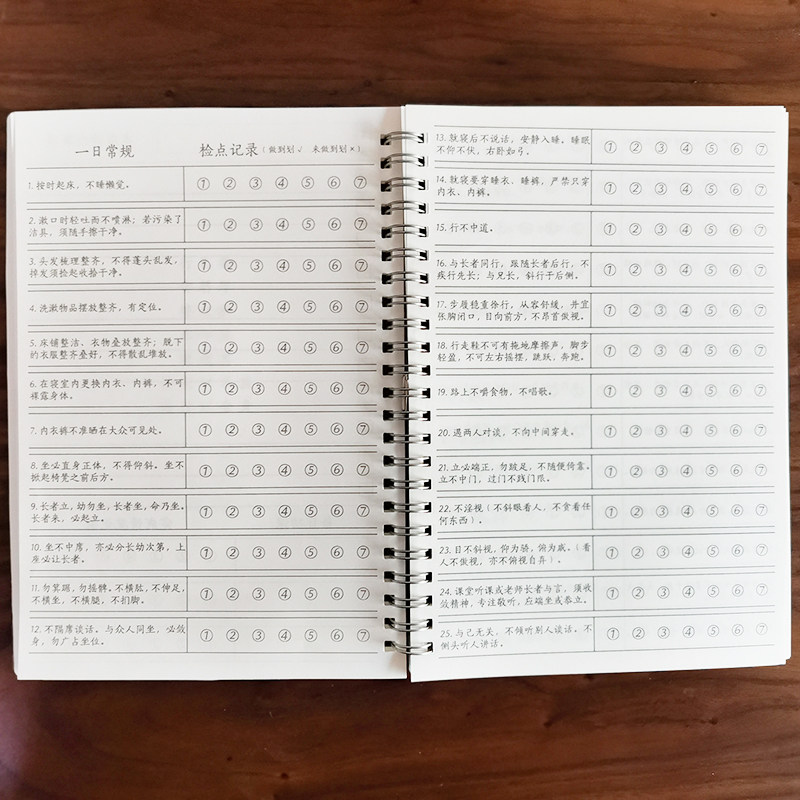 一日常规 检点记录（做到划√ 未做到划×）
1. 按时起床，不睡懒觉。 ① ② ③ ④ ⑤ ⑥ ⑦
2. 漱口时轻吐而不喷淋；若污染了
洁具，须随手擦干净。 ① ② ③ ④ ⑤ ⑥ ⑦
3. 头发梳理整齐，不得蓬头乱发，
掉发须捡起收拾干净。 ① ② ③ ④ ⑤ ⑥ ⑦
4. 洗漱物品摆放整齐，有定位。 ① ② ③ ④ ⑤ ⑥ ⑦
5. 床铺整洁、衣物叠放整齐；脱下
的衣服整齐叠好，不得散乱堆放。 ① ② ③ ④ ⑤ ⑥ ⑦
6. 在寝室内更换内衣、内裤，不可
裸露身体。 ① ② ③ ④ ⑤ ⑥ ⑦
7. 内衣裤不准晒在大众可见处。 ① ② ③ ④ ⑤ ⑥ ⑦
8. 坐必直身正体，不得仰斜。坐不
掀起椅凳之前后方。 ① ② ③ ④ ⑤ ⑥ ⑦
9. 长者立，幼勿坐，长者坐，命乃坐。
长者来，必起立。 ① ② ③ ④ ⑤ ⑥ ⑦
10. 坐不中席，亦必分长幼次第，上
座必让长者。 ① ② ③ ④ ⑤ ⑥ ⑦
11. 勿箕踞，勿摇髀。不横肱，不伸足，
不横坐，不横腿，不扪脚。 ① ② ③ ④ ⑤ ⑥ ⑦
12. 不隔席谈话。与众人同坐，必敛
身，勿广占坐位。 ① ② ③ ④ ⑤ ⑥ ⑦
13. 就寝后不说话，安静入睡。睡眠
不仰不伏，右卧如弓。 ① ② ③ ④ ⑤ ⑥ ⑦
14. 就寝要穿睡衣、睡裤，严禁只穿
内衣、内裤。 ① ② ③ ④ ⑤ ⑥ ⑦
15. 行不中道。 ① ② ③ ④ ⑤ ⑥ ⑦
16. 与长者同行，跟随长者后行，不
疾行先长；与兄长，斜行于后侧。 ① ② ③ ④ ⑤ ⑥ ⑦
17. 步履稳重徐行，从容舒缓，并宜
张胸闭口，目向前方，不昂首傲视。 ① ② ③ ④ ⑤ ⑥ ⑦
18. 行走鞋不可有拖地摩擦声，脚步
轻盈，不可左右摇摆，跳跃，奔跑。 ① ② ③ ④ ⑤ ⑥ ⑦
19. 路上不嚼食物，不唱歌。 ① ② ③ ④ ⑤ ⑥ ⑦
20. 遇两人对谈，不向中间穿走。 ① ② ③ ④ ⑤ ⑥ ⑦
21. 立必端正，勿跛足，不随便倚靠。
立不中门，过门不践门限。 ① ② ③ ④ ⑤ ⑥ ⑦
22. 不淫视（不斜眼看人，不贪看任
何东西）。 ① ② ③ ④ ⑤ ⑥ ⑦
23. 目不斜视，仰为骄，俯为戚。（看
人不傲视，亦不俯视自弃）。 ① ② ③ ④ ⑤ ⑥ ⑦
24. 课堂听课或老师长者与言，须收
敛精神，专注敬听，应端坐或恭立。 ① ② ③ ④ ⑤ ⑥ ⑦
25. 与己无关，不倾听别人谈话。不
侧头听人讲话。 ① ② ③ ④ ⑤ ⑥ ⑦